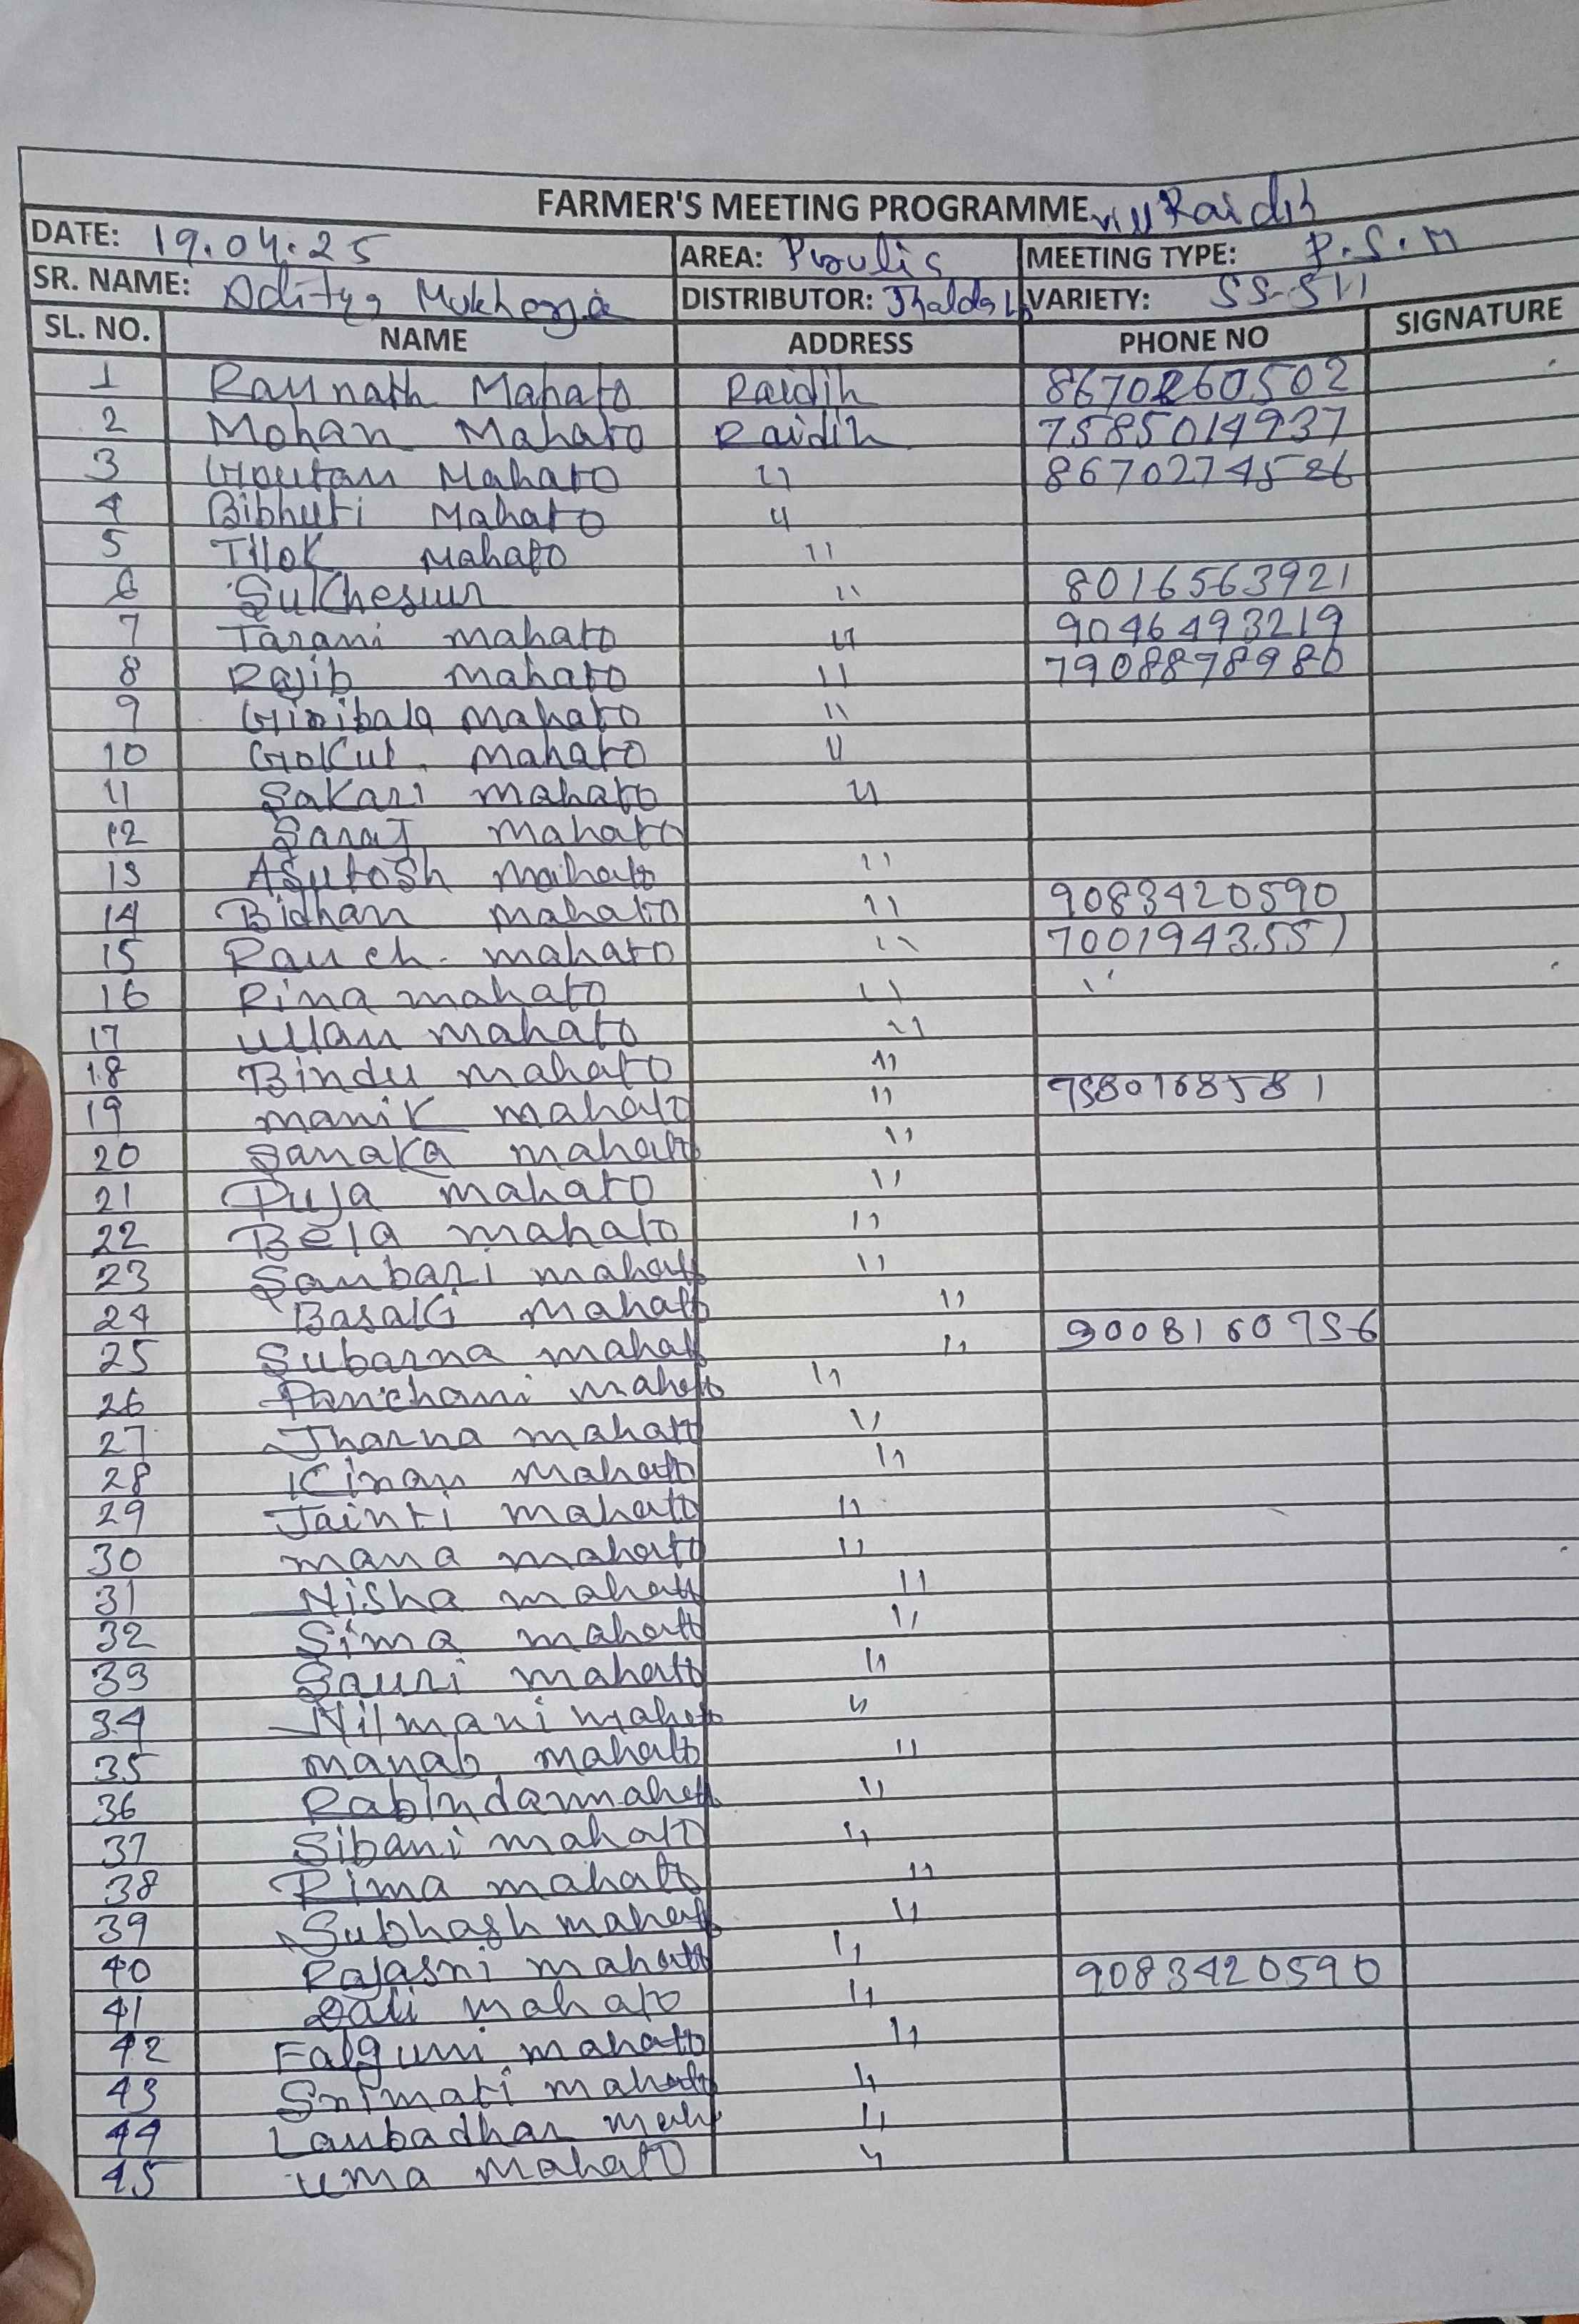 FARMER'S MEETING PROGRAMME vill Raidih
DATE: 19.04.25 AREA: MEETING TYPE: P.S.M
SR. NAME: Aditya Mukherjee DISTRIBUTOR: VARIETY:
SL. NO. NAME ADDRESS PHONE NO SIGNATURE
1 Ramnath Mahato Raidih 8670260502
2 Mohan Mahato Raidih 7585014937
3 Goutam Mahato " 8670274526
4 Bibhuti Mahato "
5 Tilok Mahato "
6 " 8016563921
7 Tarani mahato " 9046493219
8 Rajib mahato " 7908878980
9 Giribala mahato "
10 Gokul mahato "
11 Sakari mahato "
12 mahato
13 Asutosh mahato "
14 Bidhan mahato " 9083420590
15 Ram ch. mahato " 7001943551
16 Rina mahato " "
17 mahato "
18 Bindu mahato "
19 manik mahato "
20 Sanaka mahato "
21 Puja mahato "
22 Bela mahato "
23 mahato "
24 mahato "
25 Subarna mahato "
26 mahato "
27 Jharna mahato "
28 Kiran mahato "
29 Jainti mahato "
30 mana mahato "
31 Nisha mahato "
32 Sima mahato "
33 mahato "
34 Nilmani mahato "
35 manab mahato "
36 "
37 Sibani mahato "
38 Rima mahato "
39 Subhash mahato "
40 mahato "
41 mahato " 9083420590
42 Falguni mahato "
43 Srimati mahato "
44 "
45 uma mahato "